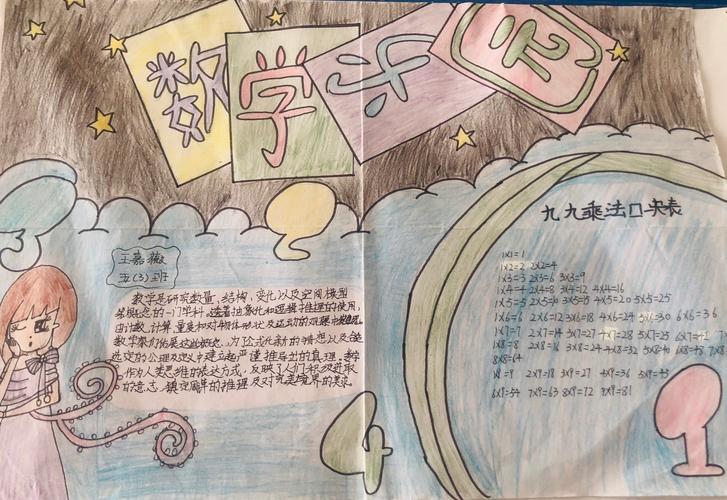 数学乐园
王嘉薇
五(3)班
数学是研究数量、结构、变化以及空间模型
等概念的一门学科。透着抽象化和逻辑推理的使用,
由计数、计算、量度和对物体形状及运动的观察中
数学家们拓展这些概念,为了公式化新的猜想以及从
选定的公理及定义中建立起严谨推导出的真理。数学
作为人类思维的表达方式,反映了人们积极进取
的意志、缜密周详的推理及对完美境界的追求。
九九乘法口央表
1×1=1
1×2=2 2×2=4
1×3=3 2×3=6 3×3=9
1×4=4 2×4=8 3×4=12 4×4=16
1×5=5 2×5=10 3×5=15 4×5=20 5×5=25
1×6=6 2×6=12 3×6=18 4×6=24 5×6=30 6×6=36
1×7=7 2×7=14 3×7=27 4×7=28 5×7=25 6×7=42
1×8=8 2×8=16 3×8=24 4×8=32 5×8=40 6×8=48
8×8=64
1×9=9 2×9=18 3×9=27 4×9=36 5×9=45
6×9=54 7×9=63 8×9=72 9×9=81